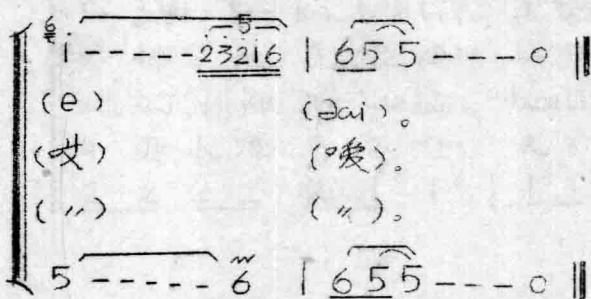 6 5
i - - - - 23216 | 655 - - - 0 ‖
e) (əai)。
(哎) (嗳)。
(〃) (〃)。
5 - - - - - 6 | 655 - - - 0 ‖